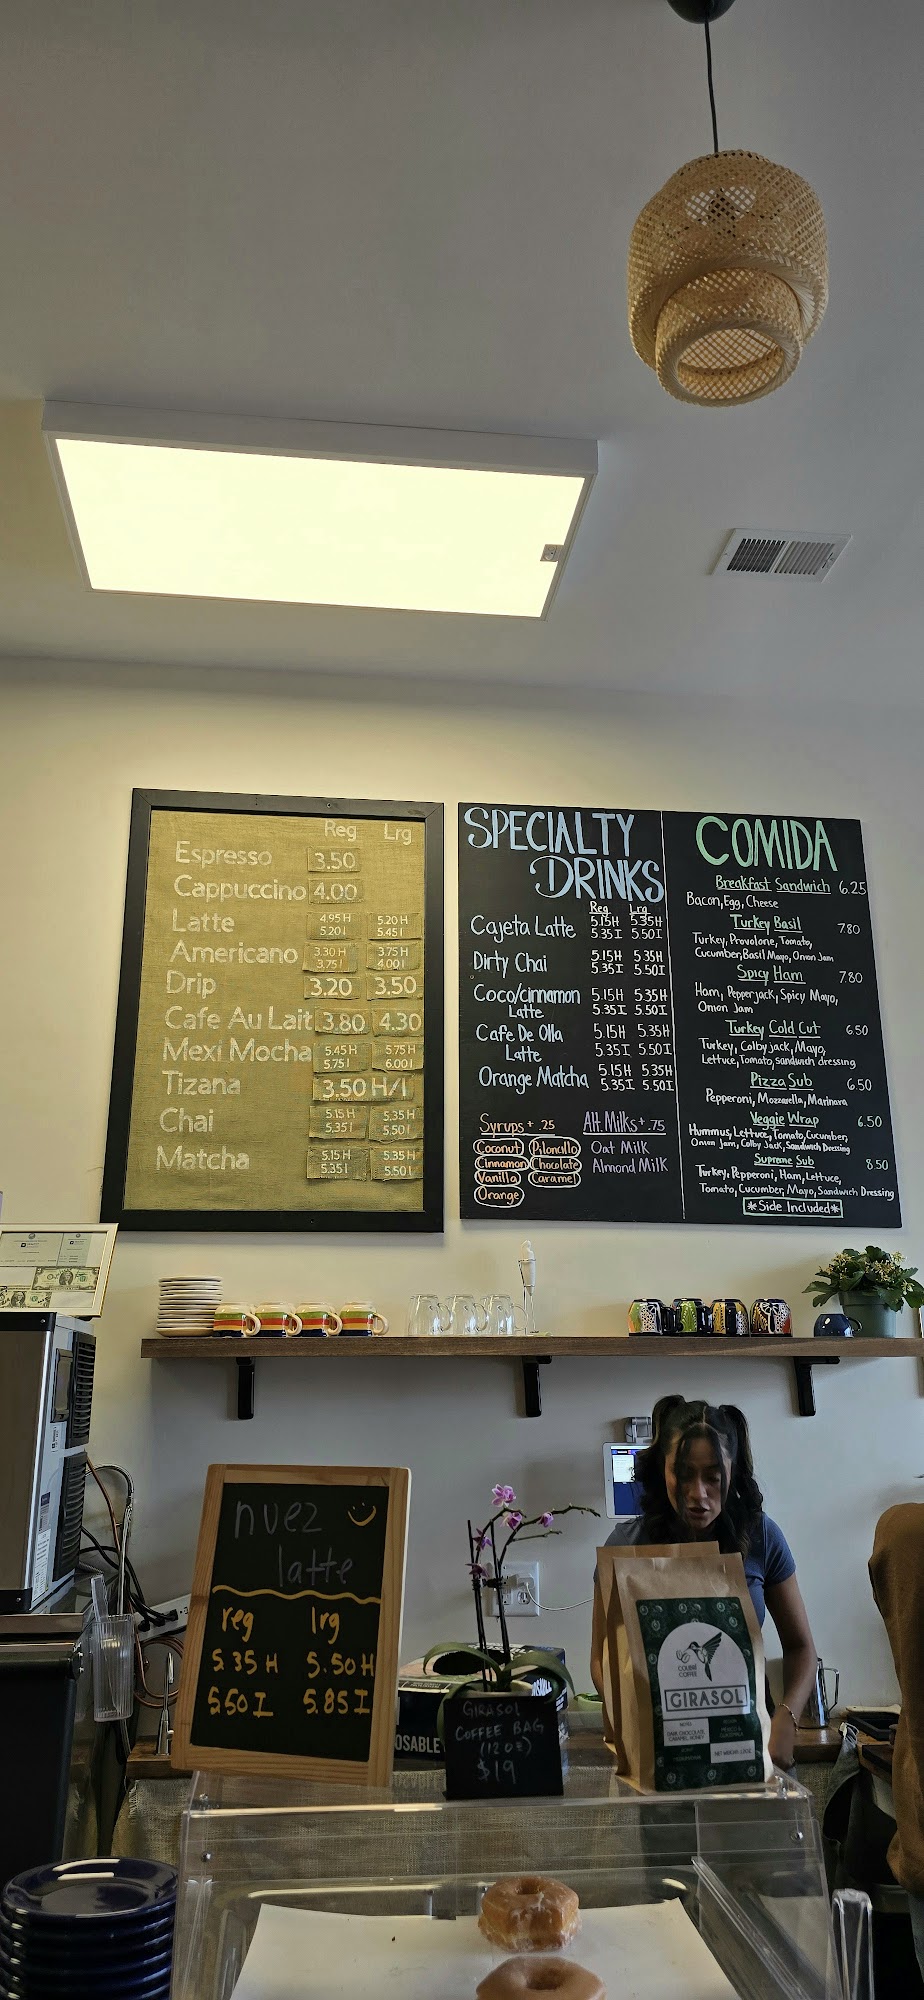 Reg Lrg
Espresso 3.50
Cappuccino 4.00
Latte 4.95 H 5.20 H
5.20 I 5.45 I
Americano 3.30 H 3.75 H
3.75 I 4.00 I
Drip 3.20 3.50
Cafe Au Lait 3.80 4.30
Mexi Mocha 5.45 H 5.75 H
5.75 I 6.00 I
Tizana 3.50 H/I
Chai 5.15 H 5.35 H
5.35 I 5.50 I
Matcha 5.15 H 5.35 H
5.35 I 5.50 I
SPECIALTY
DRINKS
Reg Lrg
Cajeta Latte 5.15H 5.35H
5.35I 5.50I
Dirty Chai 5.15H 5.35H
5.35I 5.50I
Coco/cinnamon 5.15H 5.35H
Latte 5.35I 5.50I
Cafe De Olla 5.15H 5.35H
Latte 5.35I 5.50I
Orange Matcha 5.15H 5.35H
5.35I 5.50I
Syrups + .25
Coconut Piloncillo
Cinnamon Chocolate
Vanilla Caramel
Orange
Alt. Milks + .75
Oat Milk
Almond Milk
COMIDA
Breakfast Sandwich 6.25
Bacon, Egg, Cheese
Turkey Basil 7.80
Turkey, Provolone, Tomato,
Cucumber, Basil Mayo, Onion Jam
Spicy Ham 7.80
Ham, Pepperjack, Spicy Mayo,
Onion Jam
Turkey Cold Cut 6.50
Turkey, Colby jack, Mayo,
Lettuce, Tomato, sandwich dressing
Pizza Sub 6.50
Pepperoni, Mozzarella, Marinara
Veggie Wrap 6.50
Hummus, Lettuce, Tomato, Cucumber,
Onion Jam, Colby Jack, Sandwich Dressing
Supreme Sub 8.50
Turkey, Pepperoni, Ham, Lettuce,
Tomato, Cucumber, Mayo, Sandwich Dressing
*Side Included*
nuez
latte
reg lrg
5.35 H 5.50 H
5.50 I 5.85 I
GIRASOL
COFFEE BAG
(12 oz)
$19
COLIBRÍ
COFFEE
GIRASOL
DARK CHOCOLATE,
CARAMEL, HONEY
MEXICO &
GUATEMALA
OSABLE